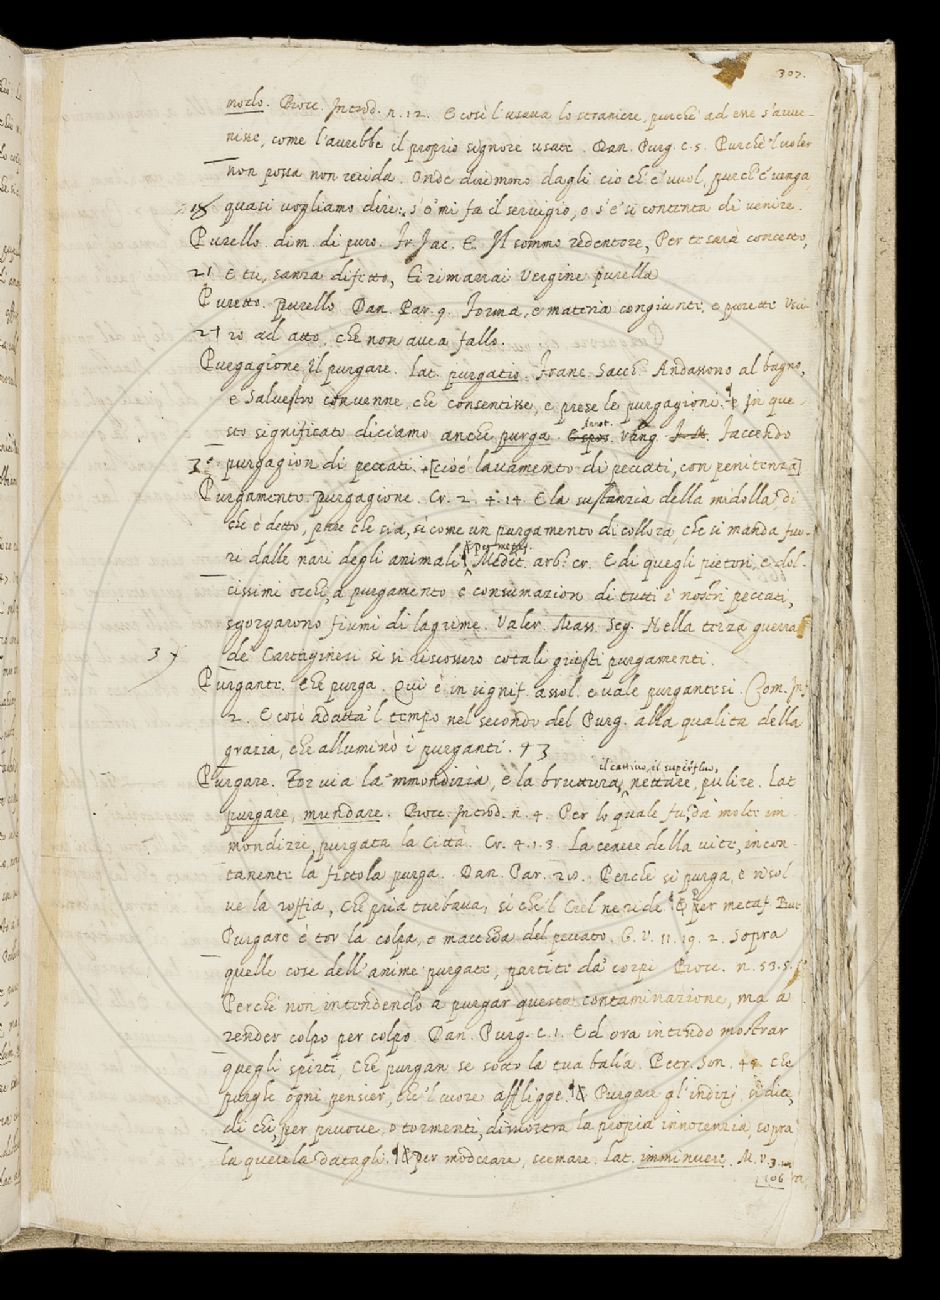 307.
modo. Bocc. Introd. n. 12. E così l'usava lo straniere, purchè ad esse s'avve-
nisse, come l'avrebbe il proprio signore usate. Dan. Purg. c. 5. Purchè 'l voler
non possa non recida. Onde diremmo dagli ciò ch'e' vuol, purch'e' venga
18 quasi vogliamo dire: s'e' mi fa il servigio, o s'e' si contenta di venire.
Purello. dim. di puro. Fr. Jac. T. Il sommo redentore, Per te sarà concetto,
21 E tu, sanza difetto, Ti rimarrai Vergine purella
Puretto. purello Dan. Par. 9. Forma, e materia congiunte, e purette Usci-
21 ro ad atto, che non avea fallo.
Purgagione Il purgare. Lat. purgatio. Franc. Sacch. Andassono al bagno,
e Salvestro convenne, che consentisse, e prese le purgagioni. In que-
sto significato diciamo anche purga. Espos. Vang. Faccendo
3 purgagion di peccati. [cioè lavamento di peccati, con penitenza]
Purgamento purgagione. Cr. 2. 4. 14. E la sustanzia della midolla, di
che è detto, pare che sia, sicome un purgamento di collora che si manda fuo-
ri dalle nari degli animali per metaf. Medit. arb. cr. E di quegli pietosi, e dol-
cissimi occhi, a purgamento e consumazion di tutti i nostri peccati,
sgorgarono fiumi di lagrime. Valer. Mass. Seg. Nella terza guerra
37 de' Cartaginesi si si riscossero cotali giusti purgamenti.
Purgante. Che purga. Qui è in signif. assol. e vale purgantesi. Com. Inf.
2. E così adatta 'l tempo nel secondo del Purg. alla qualità della
grazia, che alluminò i purganti. +3
il cattivo, il superfluo,
Purgare. Tor via la 'mmondizia, e la bruttura, nettare, pulire. Lat.
purgare, mundare. Bocc. Introd. n. 4. Per lo quale fu da molte im-
mondizie, purgata la Città. Cr. 4. 1. 3. La cenere della vite, incon-
tanente la fistola purga. Dan. Par. 28. Perchè si purga, e risol-
ve la roffia, Che pria turbava, si che 'l Ciel ne ride. per metaf. But.
Purgare è tor la colpa, e macchia del peccato. G. V. 11. 19. 2. Sopra
quelle cose dell'anime purgate, partite da' corpi Bocc. n. 53. 5.
Perchè non intendendo a purgar questa contaminazione, ma a
render colpo per colpo. Dan. Purg. c. 1. Ed ora intendo mostrar
quegli spirti, Che purgan se sotto la tua balìa. Petr. Son. 44. Che
purghi ogni pensier, che 'l cuore affligge. Purgare gl'indizj si dice,
di chi, per pruove, o tormenti, dimostra la propia innocenzia, sopra
la querela datagli. per moderare, scemare. Lat. imminuere. M. V. 3.
106